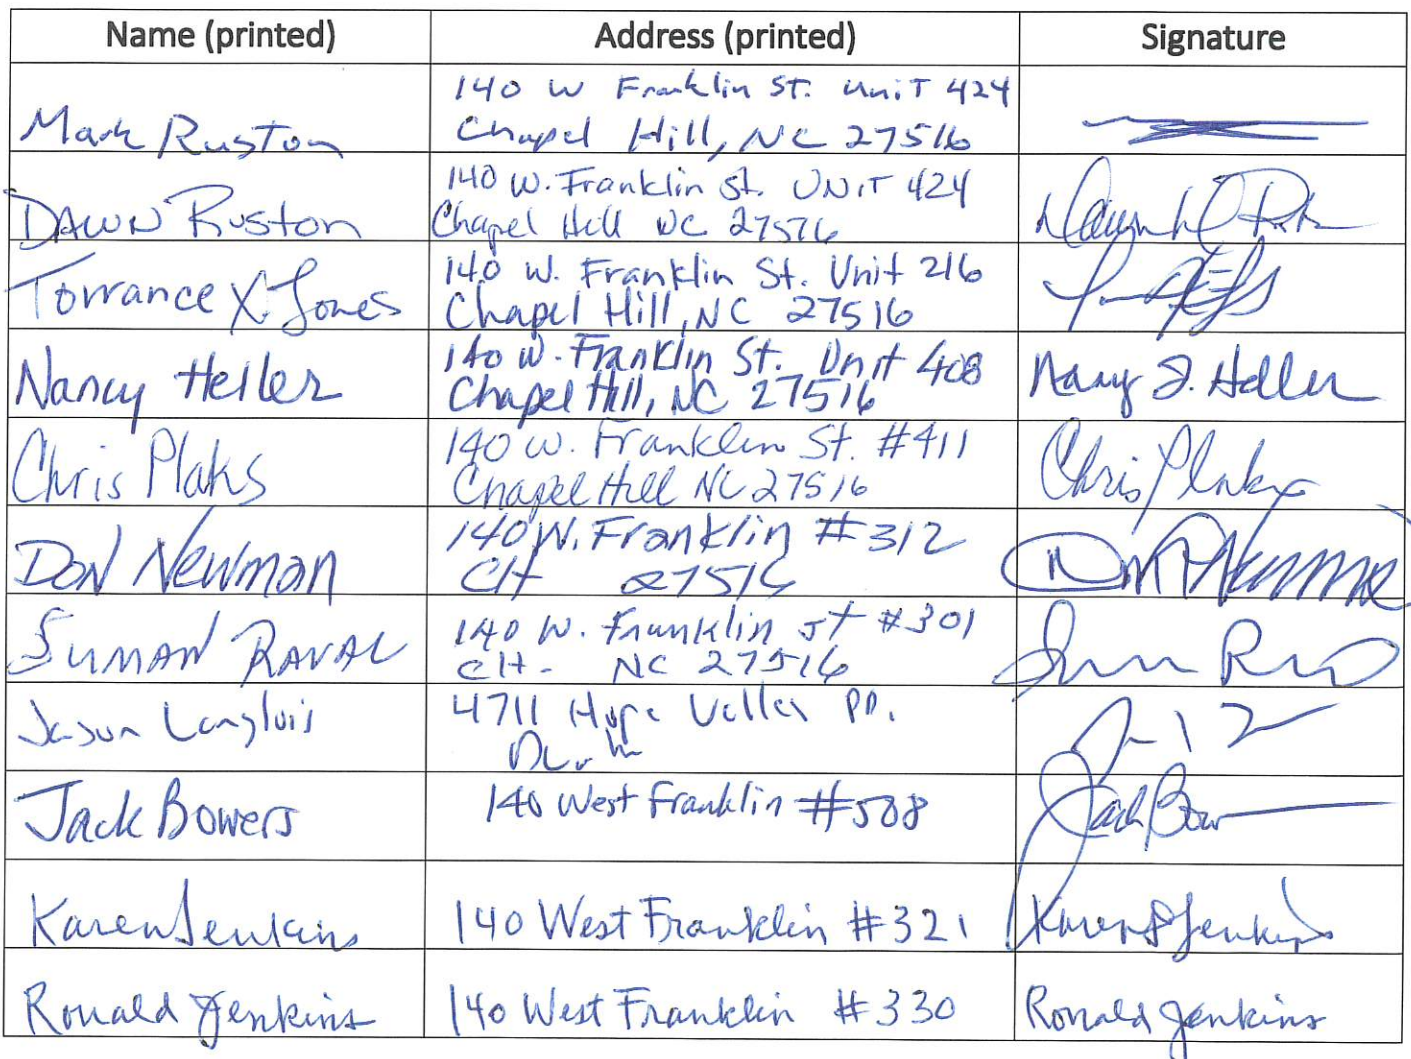 Name (printed) Address (printed) Signature
Mark Ruston
140 W Franklin St. Unit 424
Chapel Hill, NC 27516
DAWN Ruston
140 W. Franklin St. UNIT 424
Chapel Hill NC 27516
Torrance X. Jones
140 W. Franklin St. Unit 216
Chapel Hill, NC 27516
Nancy Heller
140 W. Franklin St. Unit 408
Chapel Hill, NC 27516
Nancy J. Heller
Chris Plaks
140 W. Franklin St. #411
Chapel Hill NC 27516
Chris Plaks
Don Newman
140 W. Franklin #312
CH 27516
SUMAN RAVAL
140 W. Franklin St #301
CH- NC 27516
Jason Langlois
4711 Hope Valley RD.
Durham
Jack Bowers
140 West Franklin #508
Jack Bow
Karen Jenkins
140 West Franklin #321
Karen S Jenkins
Ronald Jenkins
140 West Franklin #330
Ronald Jenkins